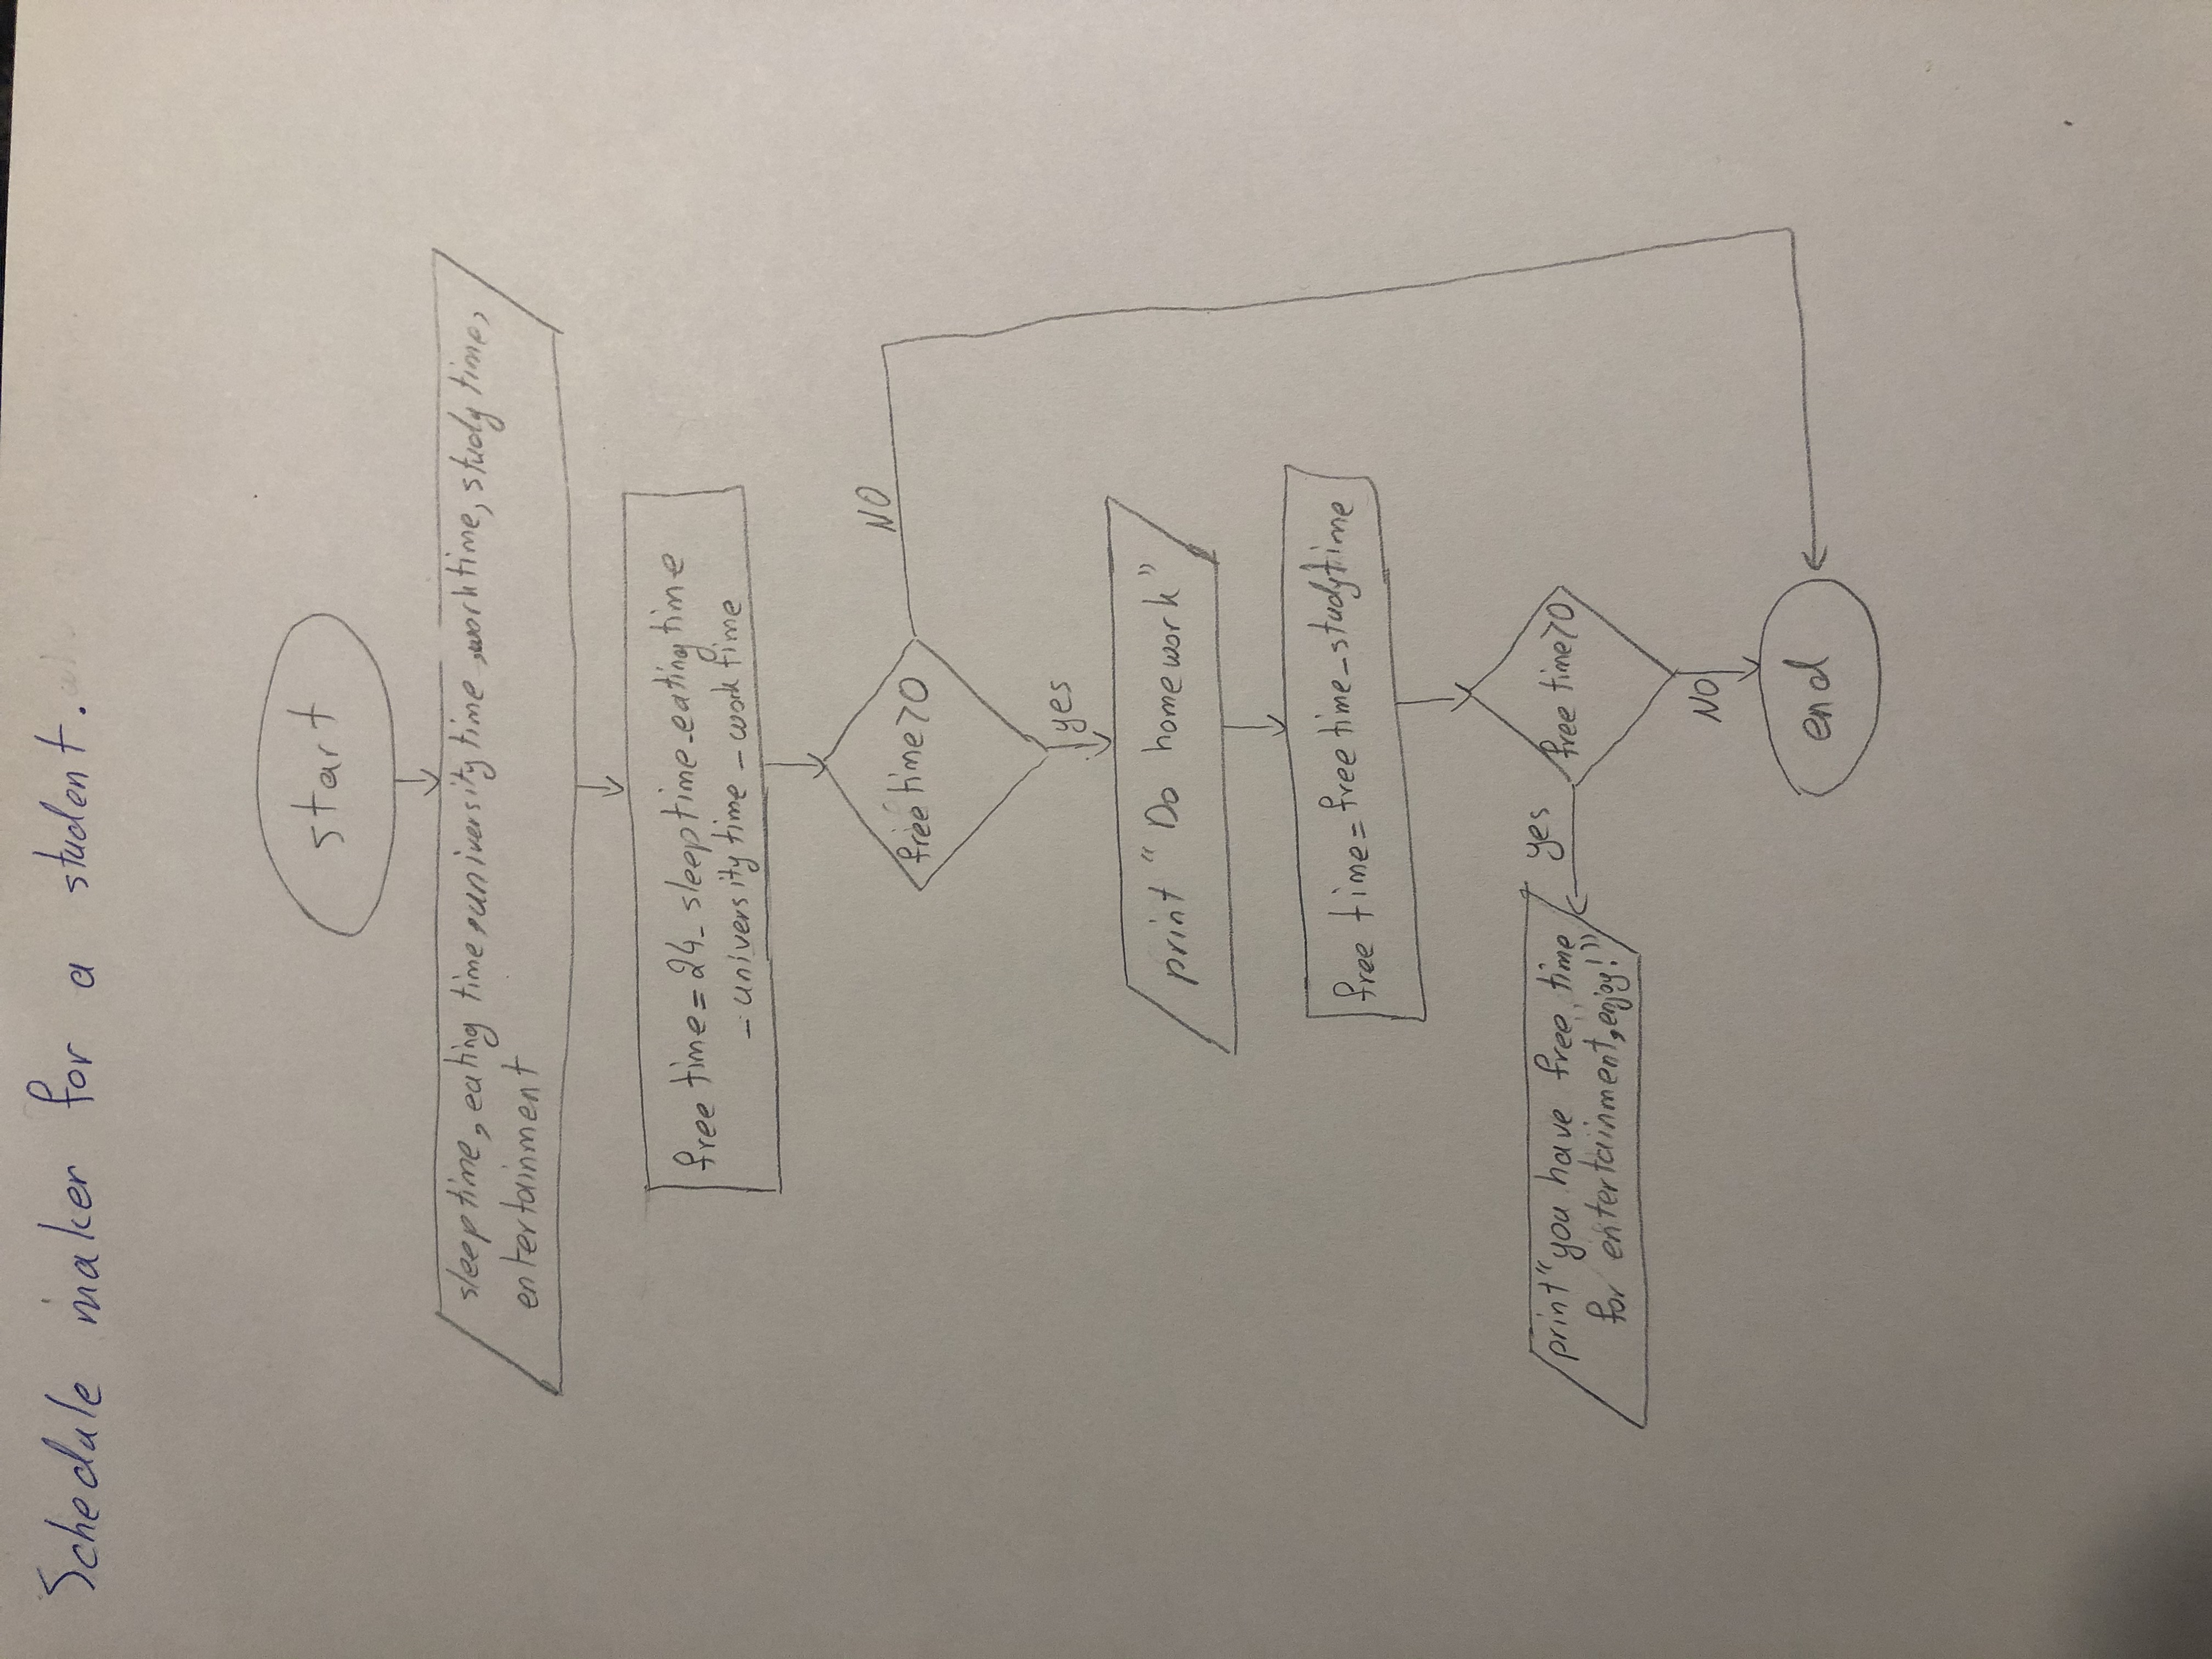 Schedule maker for a student.
start
sleep time, eating time, university time, work time, study time,
entertainment
free time = 24 - sleep time - eating time
- university time - work time
free time > 0
NO
yes
print "Do homework"
free time = free time - study time
free time > 0
yes
print "you have free time
for entertainment, enjoy!"
NO
end